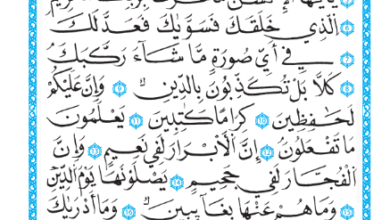 يَٰٓأَيُّهَا ٱلْإِنسَٰنُ مَا غَرَّكَ بِرَبِّكَ ٱلْكَرِيمِ
ٱلَّذِي خَلَقَكَ فَسَوَّىٰكَ فَعَدَلَكَ
فِيٓ أَيِّ صُورَةٍ مَّا شَآءَ رَكَّبَكَ
كَلَّا بَلْ تُكَذِّبُونَ بِٱلدِّينِ ٩ وَإِنَّ عَلَيْكُمْ
لَحَٰفِظِينَ ١٠ كِرَامًا كَٰتِبِينَ ١١ يَعْلَمُونَ
مَا تَفْعَلُونَ ١٢ إِنَّ ٱلْأَبْرَارَ لَفِي نَعِيمٍ ١٣ وَإِنَّ
ٱلْفُجَّارَ لَفِي جَحِيمٍ ١٤ يَصْلَوْنَهَا يَوْمَ ٱلدِّينِ
وَمَا هُمْ عَنْهَا بِغَآئِبِينَ ١٦ وَمَآ أَدْرَىٰكَ